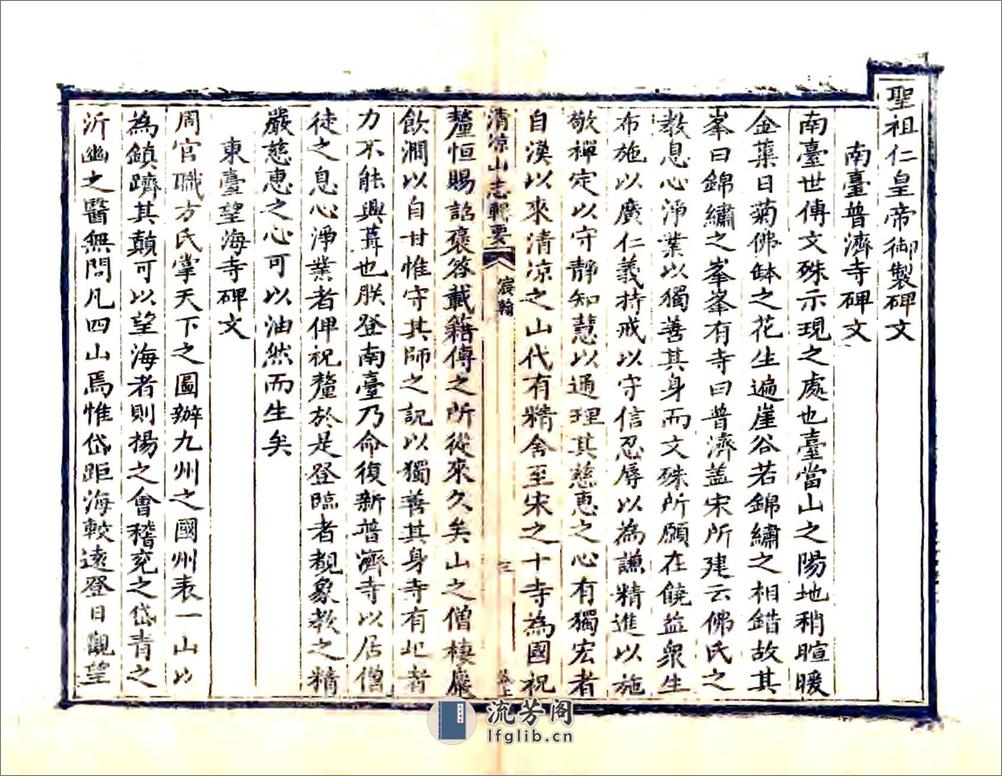 聖祖仁皇帝御製碑文
南臺普濟寺碑文
南臺世傳文殊示現之處也臺當山之陽地稍暄暖
金蕖日菊佛鉢之花生遍崖谷若錦繡之相錯故其
峯曰錦繡之峯峯有寺曰普濟盖宋所建云佛氏之
教息心淨業以獨善其身而文殊所願在饒益衆生
布施以廣仁義持戒以守信忍辱以為謙精進以施
敬禪定以守靜知慧以通理其慈惠之心有獨宏者
自漢以來清凉之山代有精舍至宋之十寺為國祝
清凉山志輯要 宸翰 三 卷上
釐恒賜詔褒答載籍傳之所從來久矣山之僧棲巖
飲澗以自甘惟守其師之說以獨善其身寺有圮者
力不能興葺也朕登南臺乃命復新普濟寺以居僧
徒之息心淨業者俾祝釐於是登臨者覩象教之精
嚴慈惠之心可以油然而生矣
東臺望海寺碑文
周官職方氏掌天下之圖辦九州之國州表一山以
為鎮躋其巔可以望海者則揚之會稽兖之岱青之
沂幽之醫無閭凡四山焉惟岱距海較遠登日觀望
流芳阁
lfglib.cn